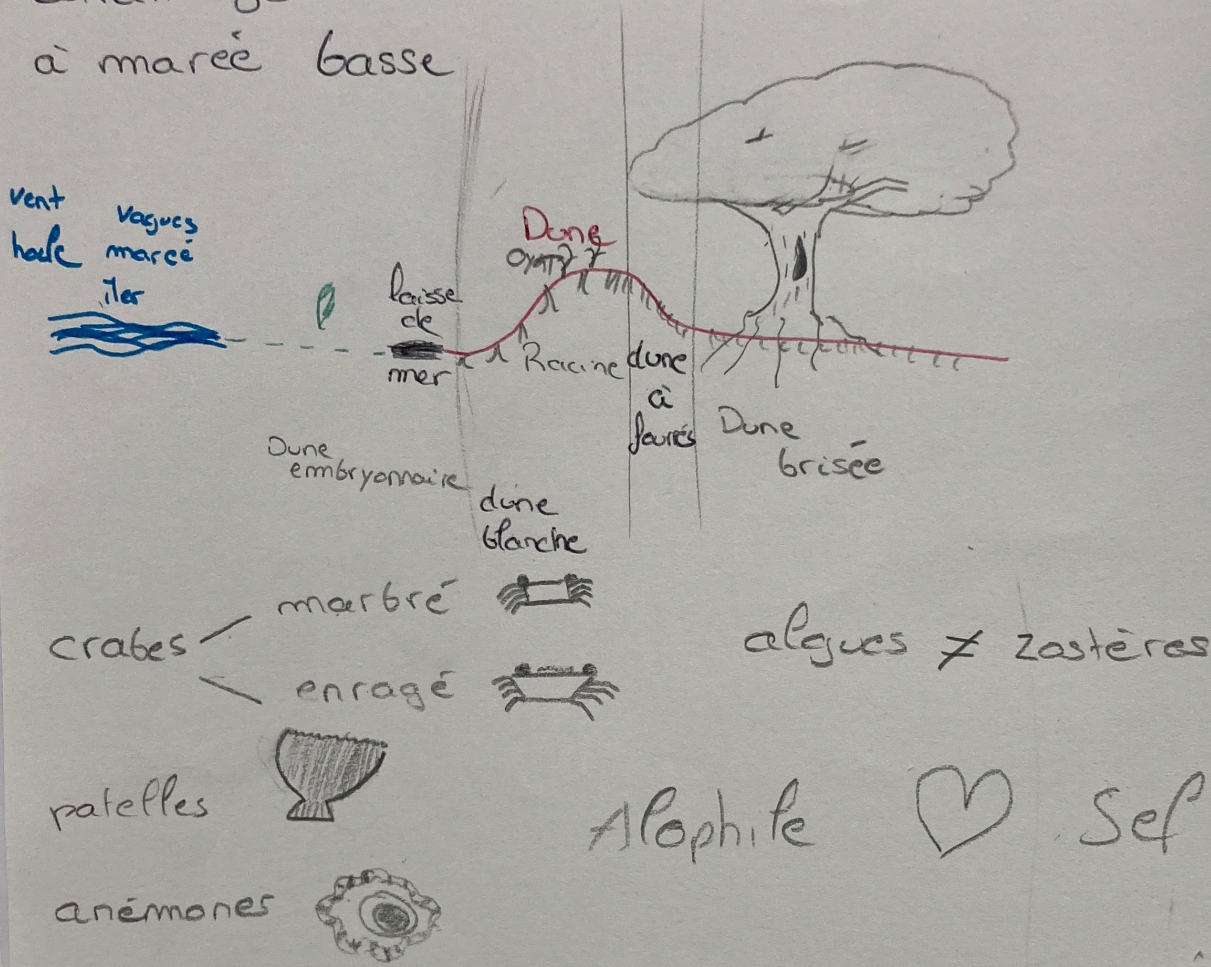 à mareé basse
vent vagues
houle mareé
îler
Dune
oyats
laisse
de
mer
Racine
dune
à
fourrés
Dune
brisée
Dune
embryonnaire
dune
blanche
crabes
marbré
enragé
algues ≠ zostères
patelles
Alophile ♡ Sel
anémones